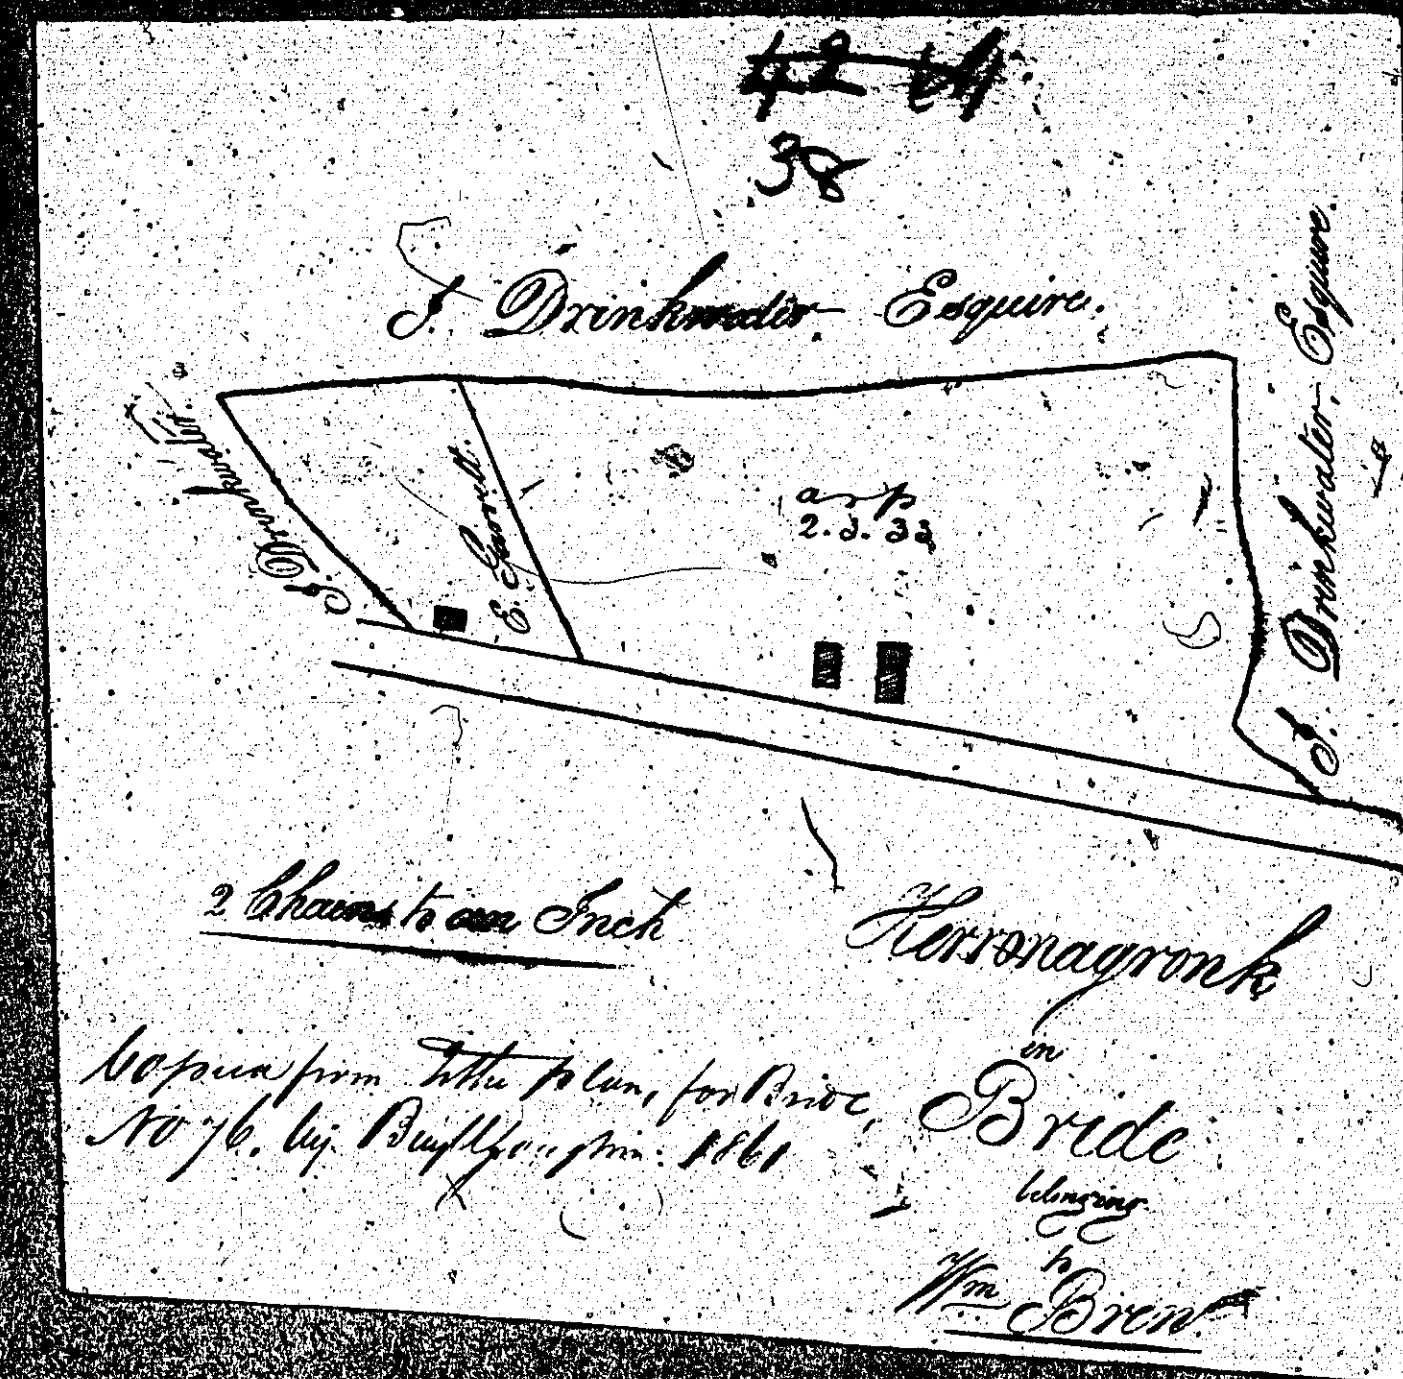 42
38
J. Drinkwater Esquire.
J. Drinkwater.
E. Gorritt.
a r p
2. 3. 33
J. Drinkwater, Esquire
2 Chains to an Inch
Kerronagronk
in
Bride
belonging
to
Wm Brew
Copied from tithe plan, for Bride,
No 76. by 1861